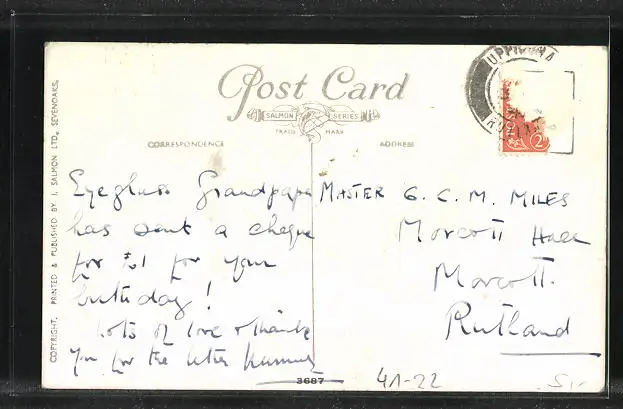 UPPINGHAM
RUTLAND
2
Post Card
SALMON SERIES
TRADE MARK
CORRESPONDENCE
ADDRESS
COPYRIGHT. PRINTED & PUBLISHED BY J. SALMON LTD., SEVENOAKS.
Eyeglass Grandpapa
has sent a cheque
for £1 for your
birthday!
Lots of love & thank
you for the letter Mummy
MASTER G. C. M. MILES
Morcott Hall
Morcott.
Rutland
3687
41-22
5/-